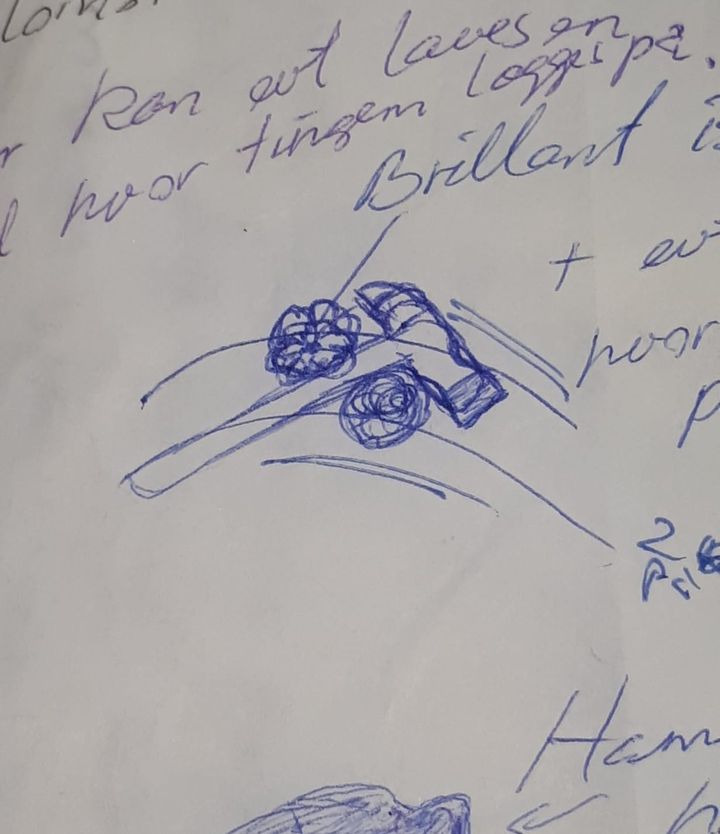 kan evt laves en
hvor tingem lægges på.
Brillant
+ ev
hvor
p
2
på
Ham